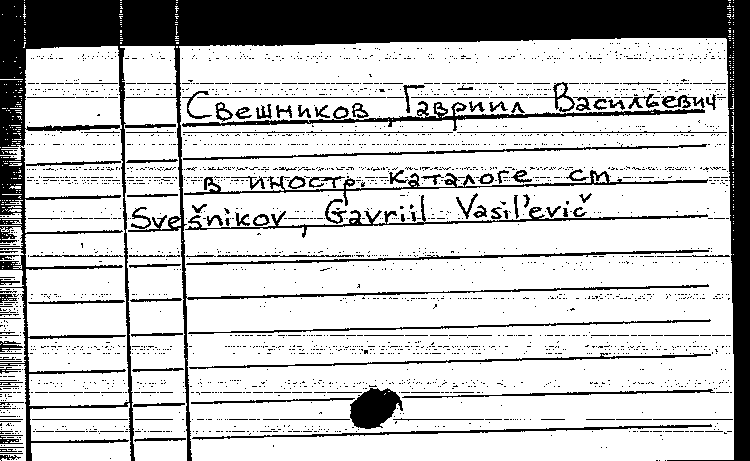 Свешников, Гавриил Васильевич
в иностр. каталоге см.
Svešnikov, Gavriil Vasil'evič